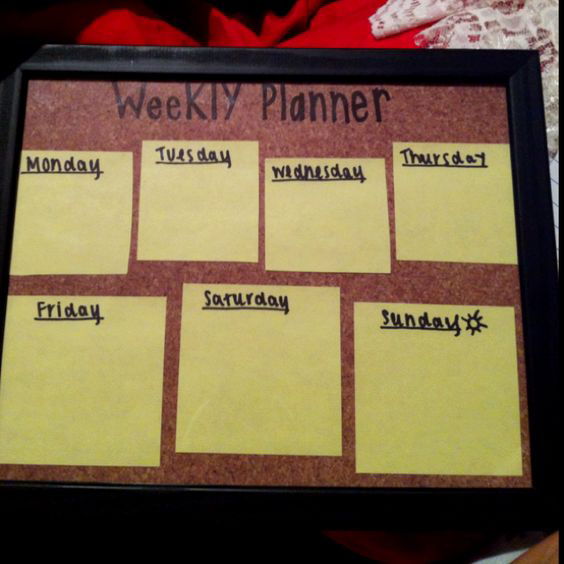 Weekly Planner
Monday
Tuesday
Wednesday
Thursday
Friday
Saturday
Sunday